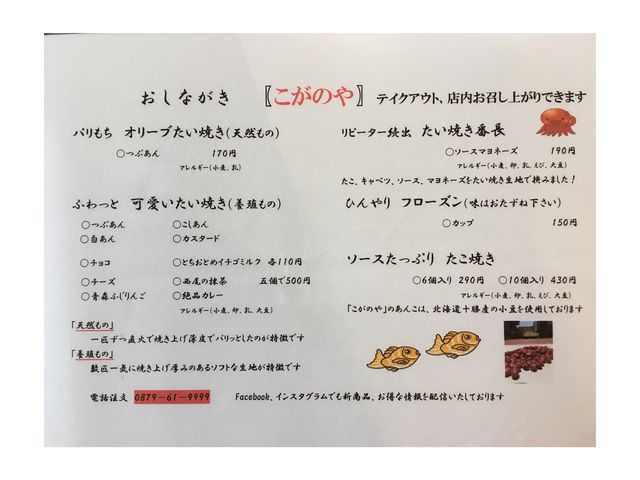 おしながき 〖こがのや〗 テイクアウト、店内お召し上がりできます
パリもち オリーブたい焼き(天然もの)
○つぶあん 170円
アレルギー(小麦、乳)
ふわっと 可愛いたい焼き(養殖もの)
○つぶあん ○こしあん
○白あん ○カスタード
○チョコ ○とちおとめイチゴミルク 各110円
○チーズ ○西尾の抹茶 五個で500円
○青森ふじりんご ○絶品カレー
アレルギー(小麦、卵、乳、大豆)
「天然もの」
一匹ずつ直火で焼き上げ薄皮でパリッとしたのが特徴です
「養殖もの」
数匹一気に焼き上げ厚みのあるソフトな生地が特徴です
リピーター続出 たい焼き番長
○ソースマヨネーズ 190円
アレルギー(小麦、卵、乳、えび、大豆)
たこ、キャベツ、ソース、マヨネーズをたい焼き生地で挟みました!
ひんやり フローズン(味はおたずね下さい)
○カップ 150円
ソースたっぷり たこ焼き
○6個入り 290円 ○10個入り 430円
アレルギー(小麦、卵、乳、えび、大豆)
「こがのや」のあんこは、北海道十勝産の小豆を使用しております
電話注文 0879-61-9999 Facebook、インスタグラムでも新商品、お得な情報を配信いたしております